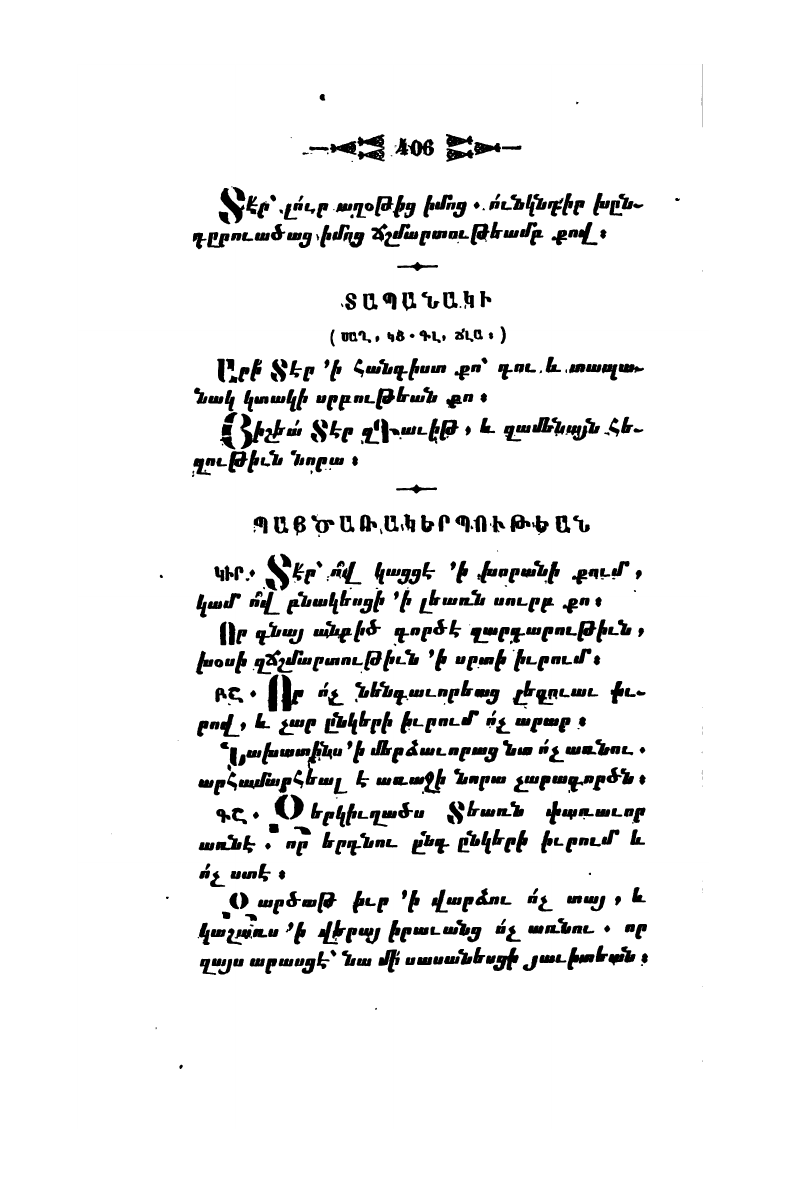 406
Տէր՝ լո՛ւր աղօթից իմոց . ո՛ւնկնդիր խըն-
դըրուածաց իմոց ճշմարտութեամբ քով ։
ՏԱՊԱՆԱԿԻ
Արի՛ Տէր ՚ի հանգիստ քո՝ դու և տապա-
նակ կտակի սրբութեան քո ։
Յիշեա՛ Տէր զԴաւիթ , և զամենայն հե-
զութիւն նորա ։
ՊԱՅԾԱՌԱԿԵՐՊՈՒԹԵԱՆ
ԿԻՐ . Տէր՝ ո՞վ կացցէ ՚ի խորանի քում ,
կամ ո՞վ բնակեսցի ՚ի լեառն սուրբ քո ։
Որ գնայ անբիծ գործէ զարդարութիւն ,
խօսի զճշմարտութիւն ՚ի սրտի իւրում ։
ԲՇ . Որ ո՛չ նենգաւորեաց լեզուաւ իւ-
րով , և չար ընկերի իւրում ո՛չ արար ։
Նախատինս ՚ի մերձաւորաց նա ո՛չ առնու .
արհամարհեալ է առաջի նորա չարագործն ։
ԳՇ . Զերկիւղածս Տեառն փառաւոր
առնէ . որ երդնու ընդ ընկերի իւրում և
ո՛չ ստէ ։
Զարծաթ իւր ՚ի վարձու ո՛չ տայ , և
կաշառս ՚ի վերայ իրաւանց ո՛չ առնու . որ
զայս արասցէ՝ նա մի՛ սասանեսցի յաւիտեան ։